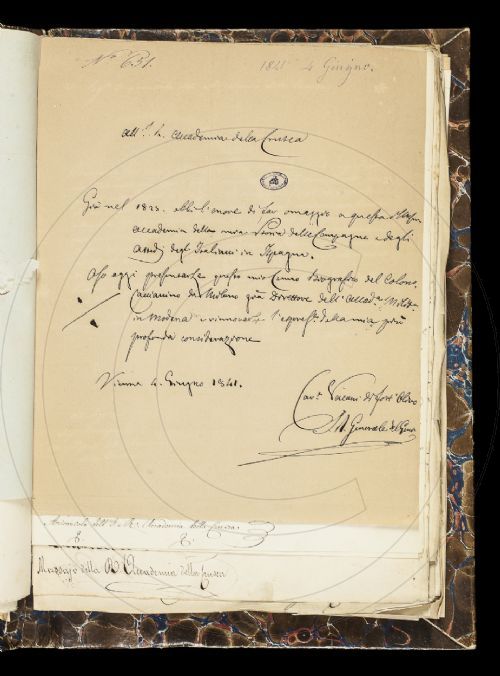 N.º 651.
1841 4 Giugno.
All' I. Accademia della Crusca
Già nel 1823. ebbi l'onore di far omaggio a questa
Accademia della mia Storia delle Campagne e degli
Assedj degl'Italiani in Ispagna.
Oso oggi presentarle questo mio Cenno Biografico del Colono
Caccianino da Milano già Direttore dell'Accad.ª Milit.
in Modena e rinnovarle l'espress.e della mia più
profonda considerazione
Vienna 4. Giugno 1841.
Cav.r Vacani di Forte Olivo
Generale del Genio
dell' I. e R. Accademia della Crusca.
Massajo della R. Accademia della Crusca